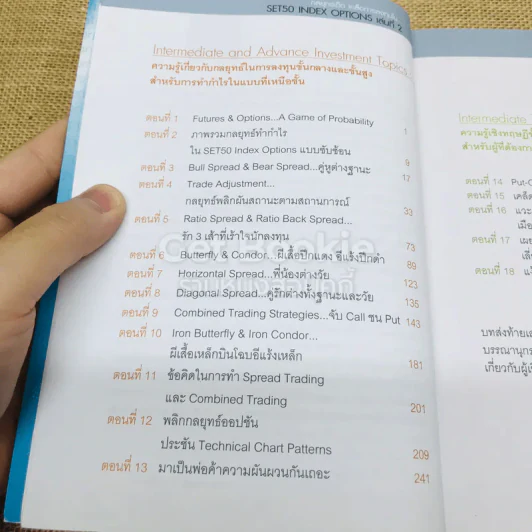 SET50 INDEX OPTIONS เล่มที่ 2
Intermediate and Advance Investment Topics
ความรู้เกี่ยวกับกลยุทธ์ในการลงทุนชั้นกลางและชั้นสูง
สำหรับการทำกำไรในแบบที่เหนือชั้น
ตอนที่ 1 Futures & Options...A Game of Probability 1
ตอนที่ 2 ภาพรวมกลยุทธ์ทำกำไร
ใน SET50 Index Options แบบซับซ้อน 9
ตอนที่ 3 Bull Spread & Bear Spread...คู่หูต่างฐานะ 17
ตอนที่ 4 Trade Adjustment...
กลยุทธ์พลิกผันสถานะตามสถานการณ์ 33
ตอนที่ 5 Ratio Spread & Ratio Back Spread...
รัก 3 เส้าที่เร้าใจนักลงทุน 73
ตอนที่ 6 Butterfly & Condor...ผีเสื้อปีกแดง อีแร้งปีกดำ 89
ตอนที่ 7 Horizontal Spread...พี่น้องต่างวัย 123
ตอนที่ 8 Diagonal Spread...คู่รักต่างทั้งฐานะและวัย 135
ตอนที่ 9 Combined Trading Strategies...จับ Call ชน Put 143
ตอนที่ 10 Iron Butterfly & Iron Condor...
ผีเสื้อเหล็กบินโฉบอีแร้งเหล็ก 181
ตอนที่ 11 ข้อคิดในการทำ Spread Trading
และ Combined Trading 201
ตอนที่ 12 พลิกกลยุทธ์ออปชัน
ประชัน Technical Chart Patterns 209
ตอนที่ 13 มาเป็นพ่อค้าความผันผวนกันเถอะ 241
Get Bookie
Intermediate
ความรู้เชิงทฤษฎี
สำหรับผู้ที่ต้องการ
ตอนที่ 14 Put-C
ตอนที่ 15 เคล็ด
ตอนที่ 16 แวะ
เมื่อ
ตอนที่ 17 เผย
ตอนที่ 18
บทส่งท้าย
บรรณานุกร
เกี่ยวกับผู้เ